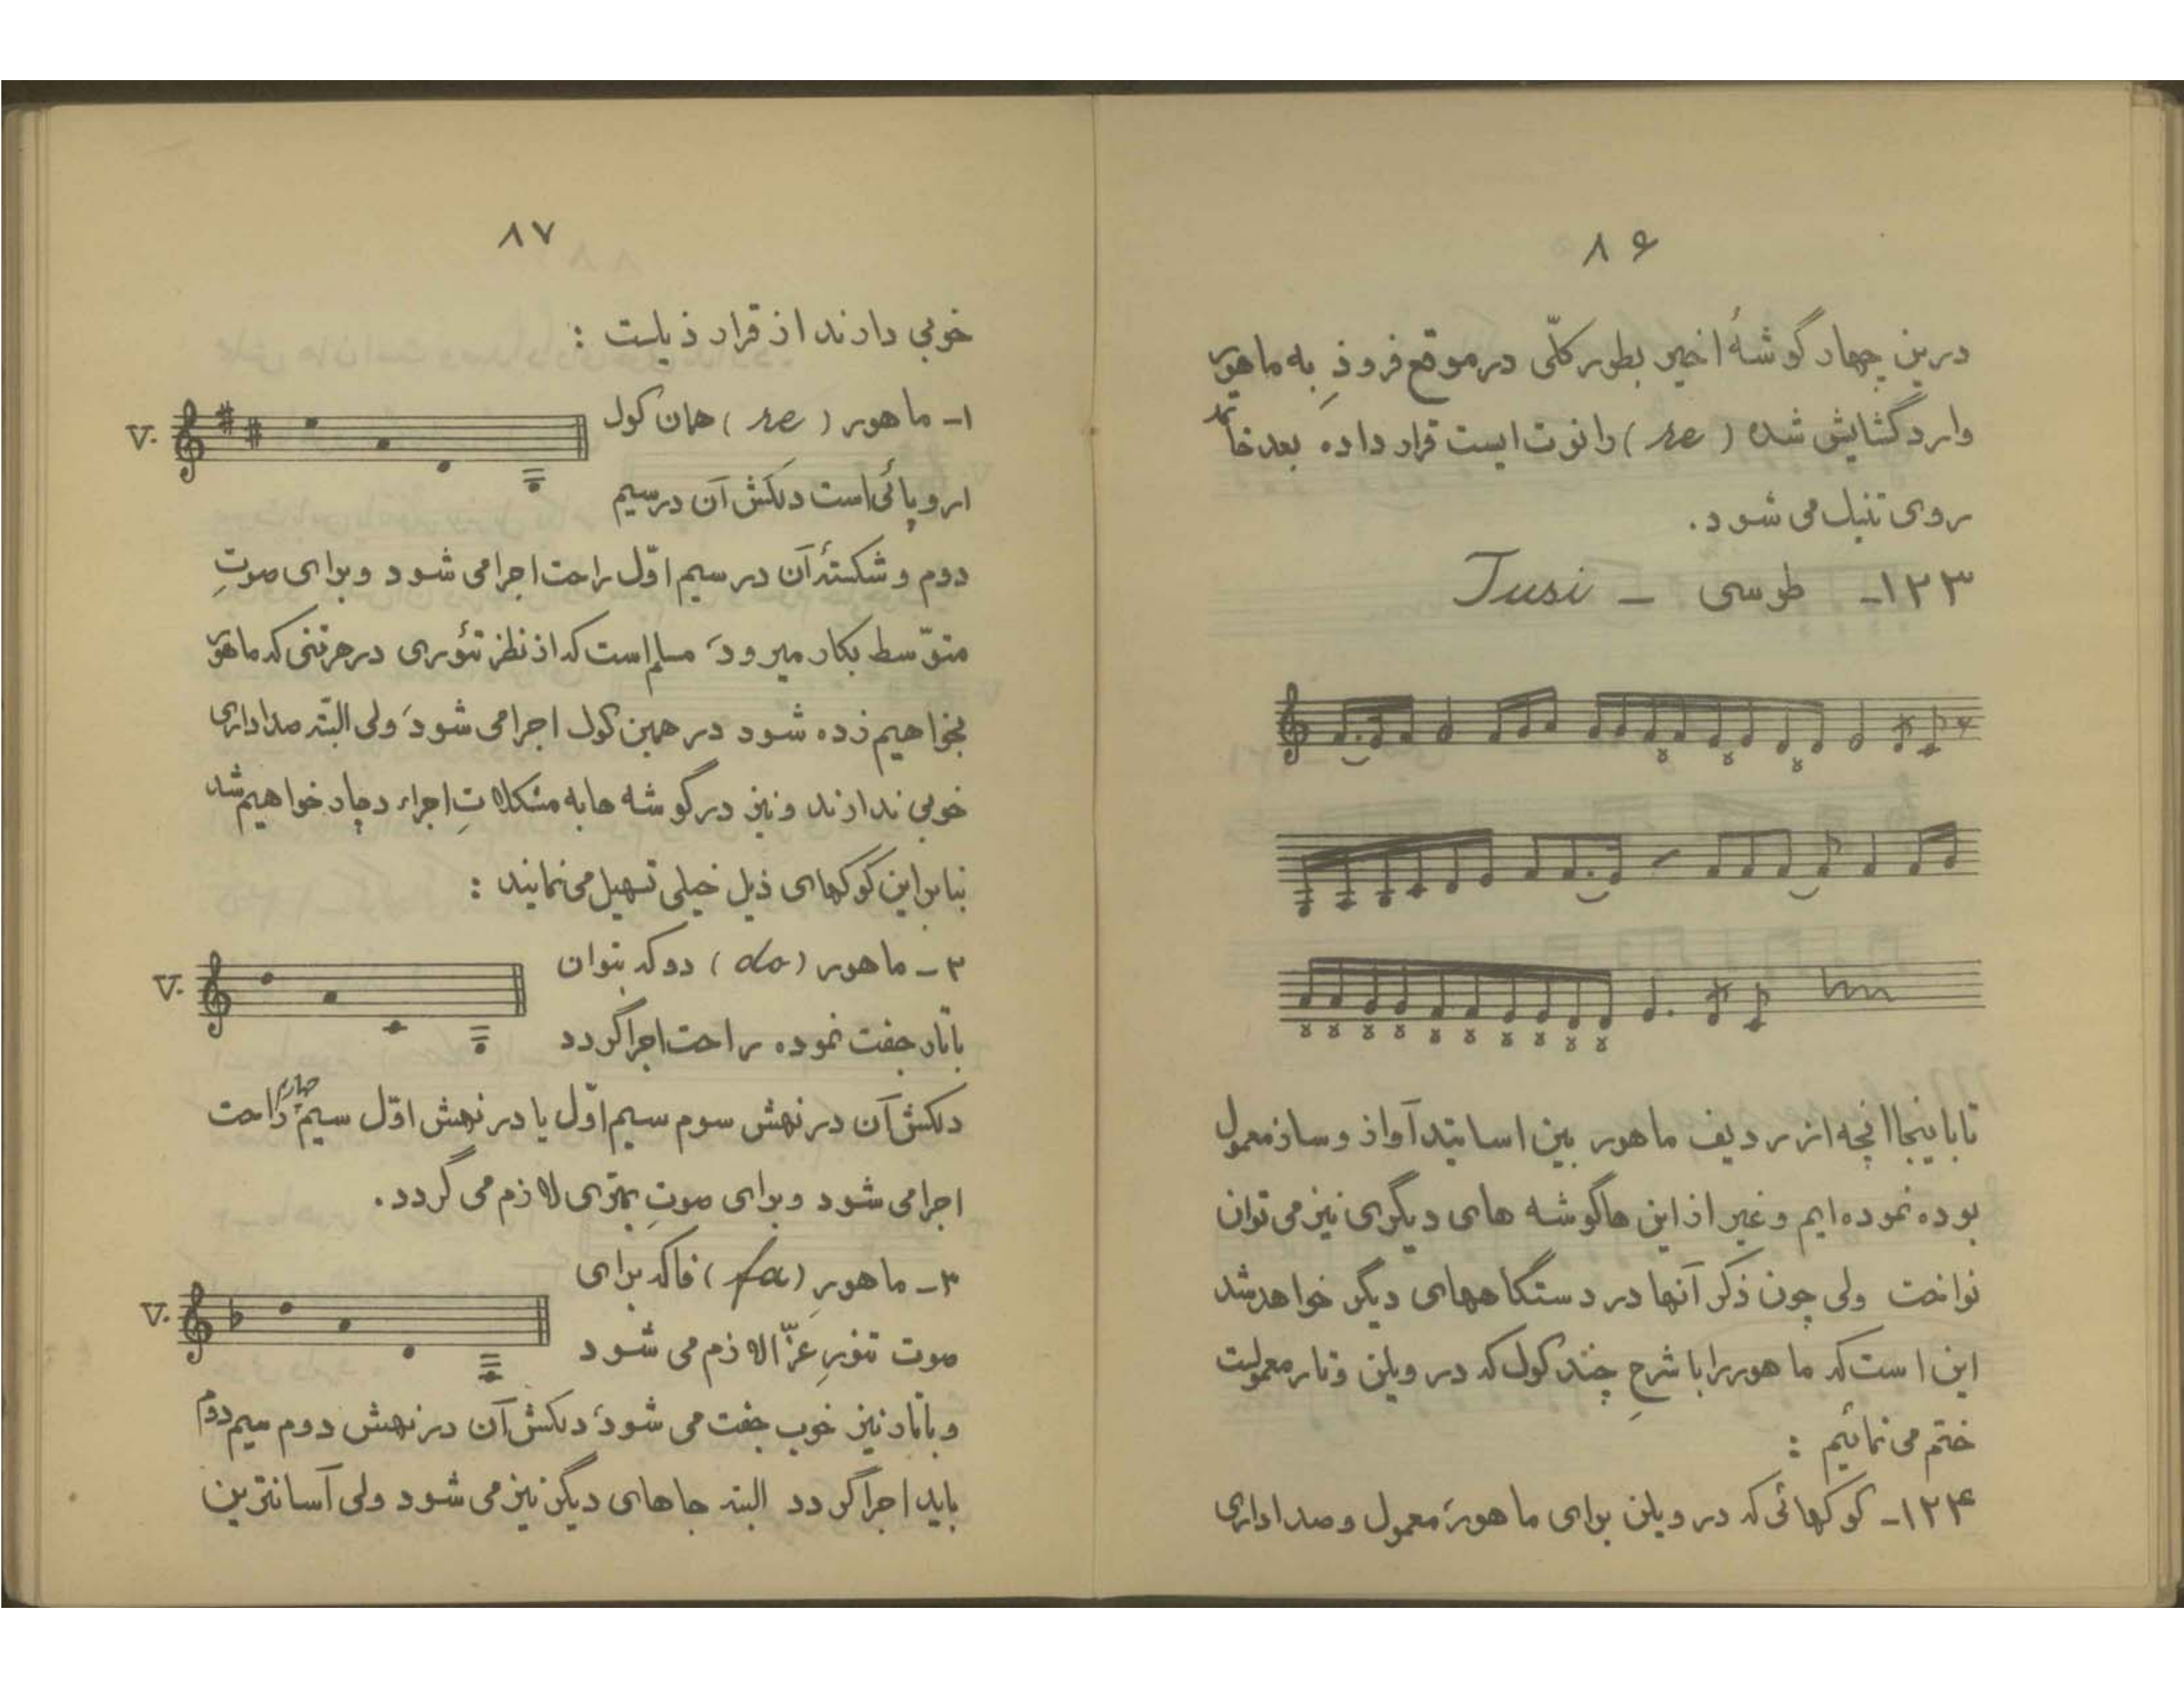 ۸۶
درین چهار گوشهٔ اخیر بطور کلّی در موقع فرود به ماهور
وارد گشایش شده (re) را نوت ایست قرار داده بعد خاتمه
روی تنیک می شود.
۱۲۳- طوسی - Tusi
تا باینجا آنچه از ردیف ماهور بین اساتید آواز و ساز معمول
بوده نموده ایم و غیر از این ها گوشه های دیگری نیز می توان
نواخت ولی چون ذکر آنها در دستگاههای دیگر خواهد شد
این است که ماهور را با شرحِ چند کوک که در ویلن و تار معمولست
ختم می نمائیم :
۱۲۴- کوکهائی که در ویلن برای ماهور معمول و صدا داری
۸۷
خوبی دارند از قرار ذیلست :
۱- ماهور (re) همان کوک
V.
اروپائی است دلکش آن در سیم
دوم و شکستهٔ آن در سیم اوّل راحت اجرا می شود و برای صوتِ
متوّسط بکار میرود، مسلم است که از نظر تئوری در هر تنی که ماهور
بخواهیم زده شود در همین کوک اجرا می شود، ولی البتّه صدا داری
خوبی ندارند و نیز در گوشه ها به مشکلاتِ اجراء دچار خواهیم شد
بنابراین کوکهای ذیل خیلی تسهیل می نمایند :
۲- ماهور (do) دو که بتوان
V.
با تار جفت نموده راحت اجرا گردد
دلکش آن در نهش سوم سیم اوّل یا در نهش اوّل سیم چهارم راحت
اجرا می شود و برای صوتِ بمتری لازم می گردد.
۳- ماهور (fa) فا که برای
V.
صوت تنورِ عزّا لازم می شود
و با تار نیز خوب جفت می شود، دلکش آن در نهش دوم سیم دوم
باید اجرا گردد البته جاهای دیگر نیز می شود ولی آسانترین